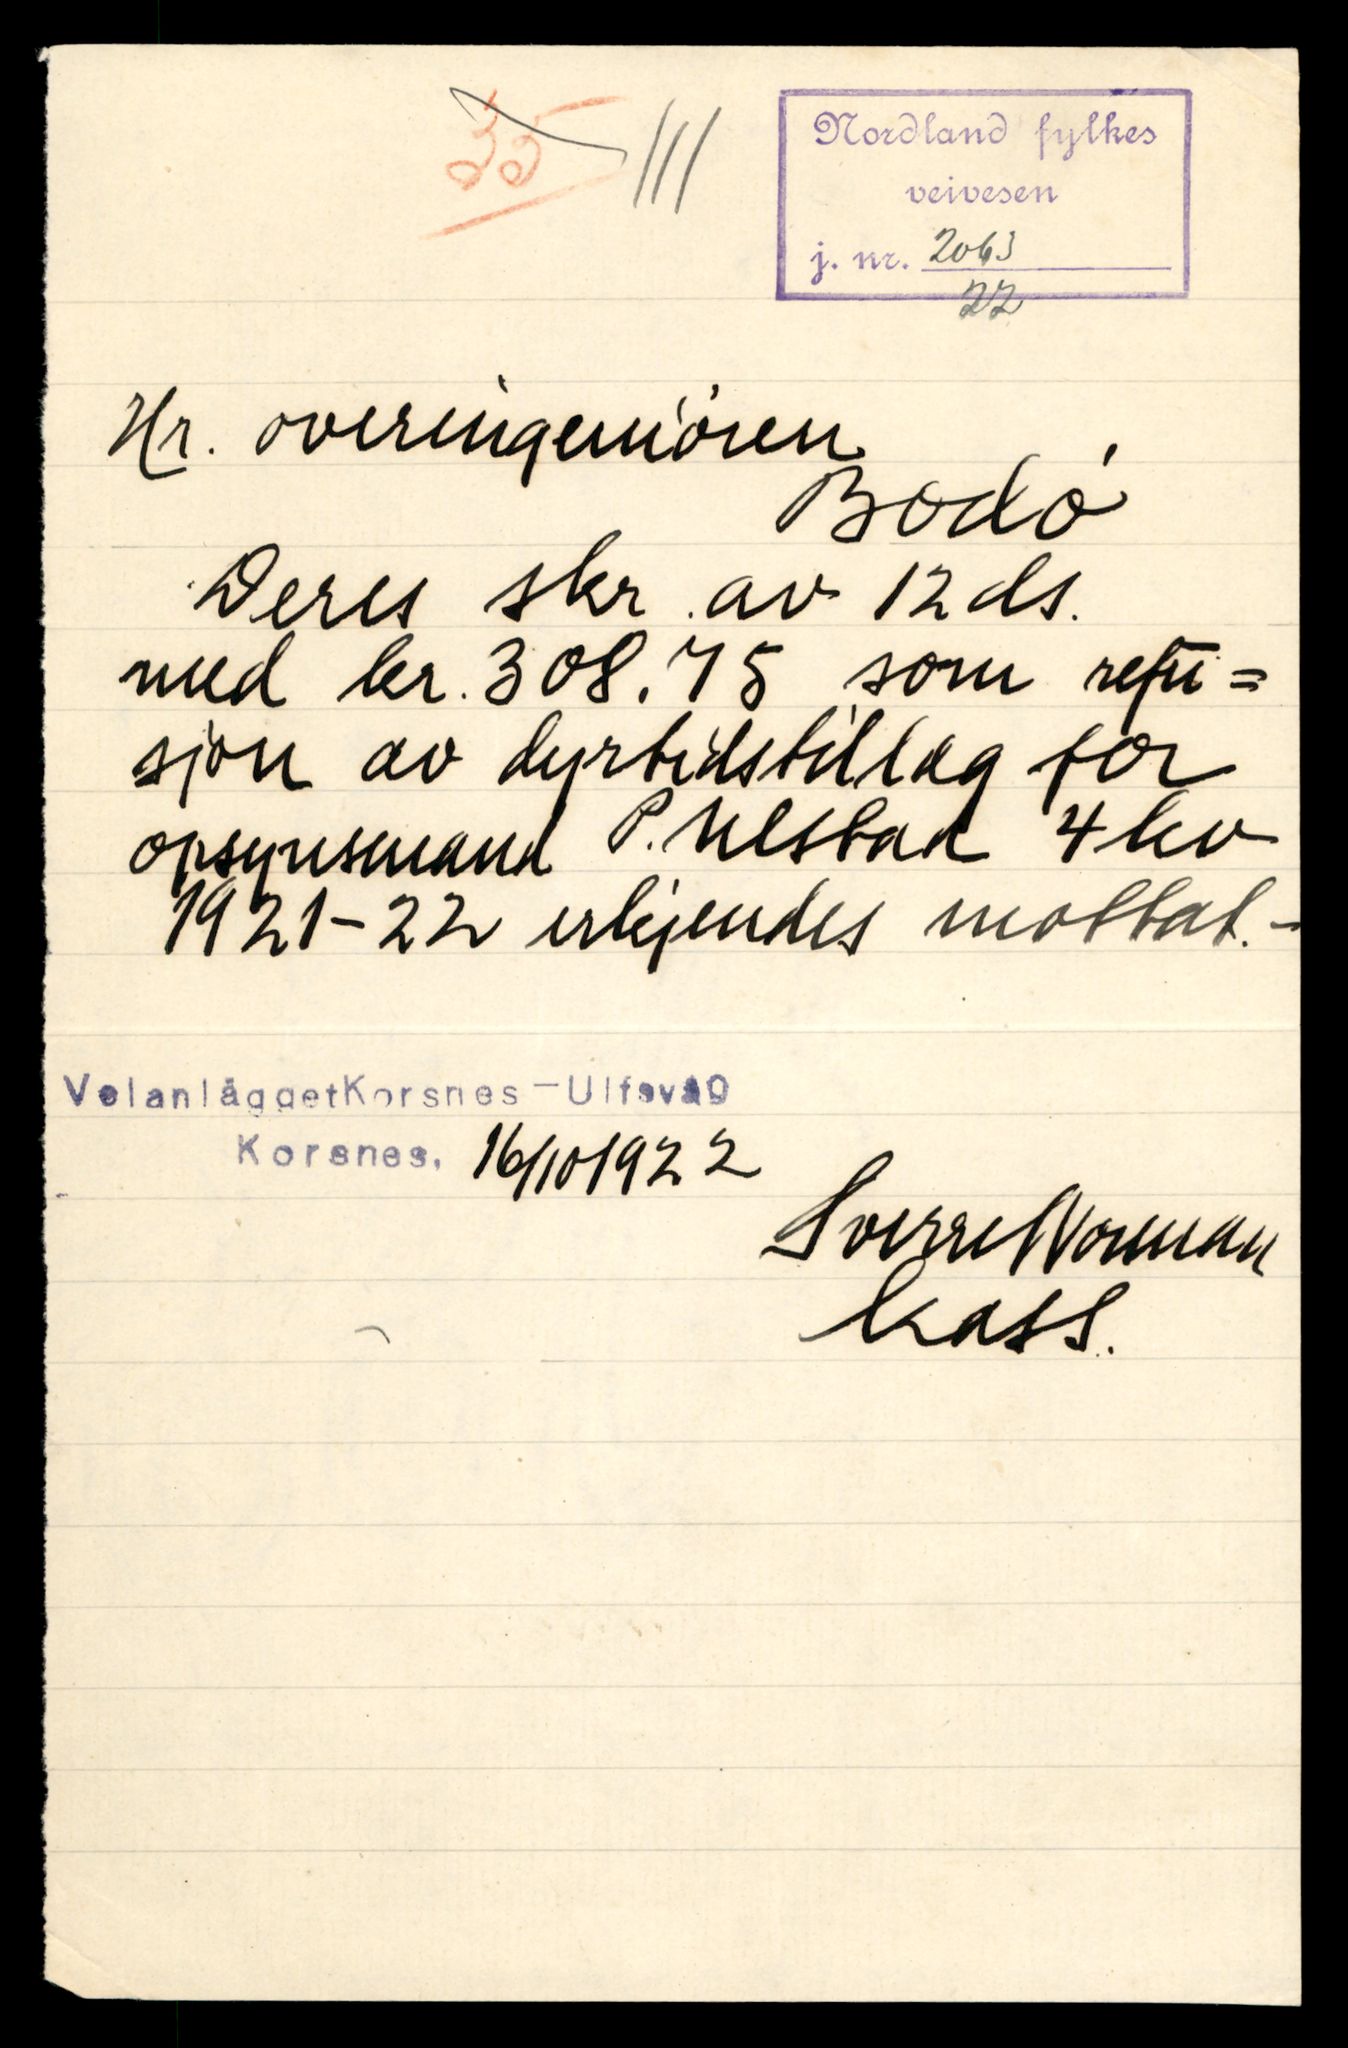 35 111
Nordland fylkes
veivesen
j. nr. 2063
22
Hr. overingeniören
Bodö
Deres skr. av 12 ds.
med kr. 308.75 som refu=
sjon av dyrtidstillæg for
opsynsmand P. Ulstad 4 kv
1921-22 erkjendes mottat.-
VeianläggetKorsnes-Ulfsvåg
Korsnes, 16/10 1922
Sverre Norman
kass.